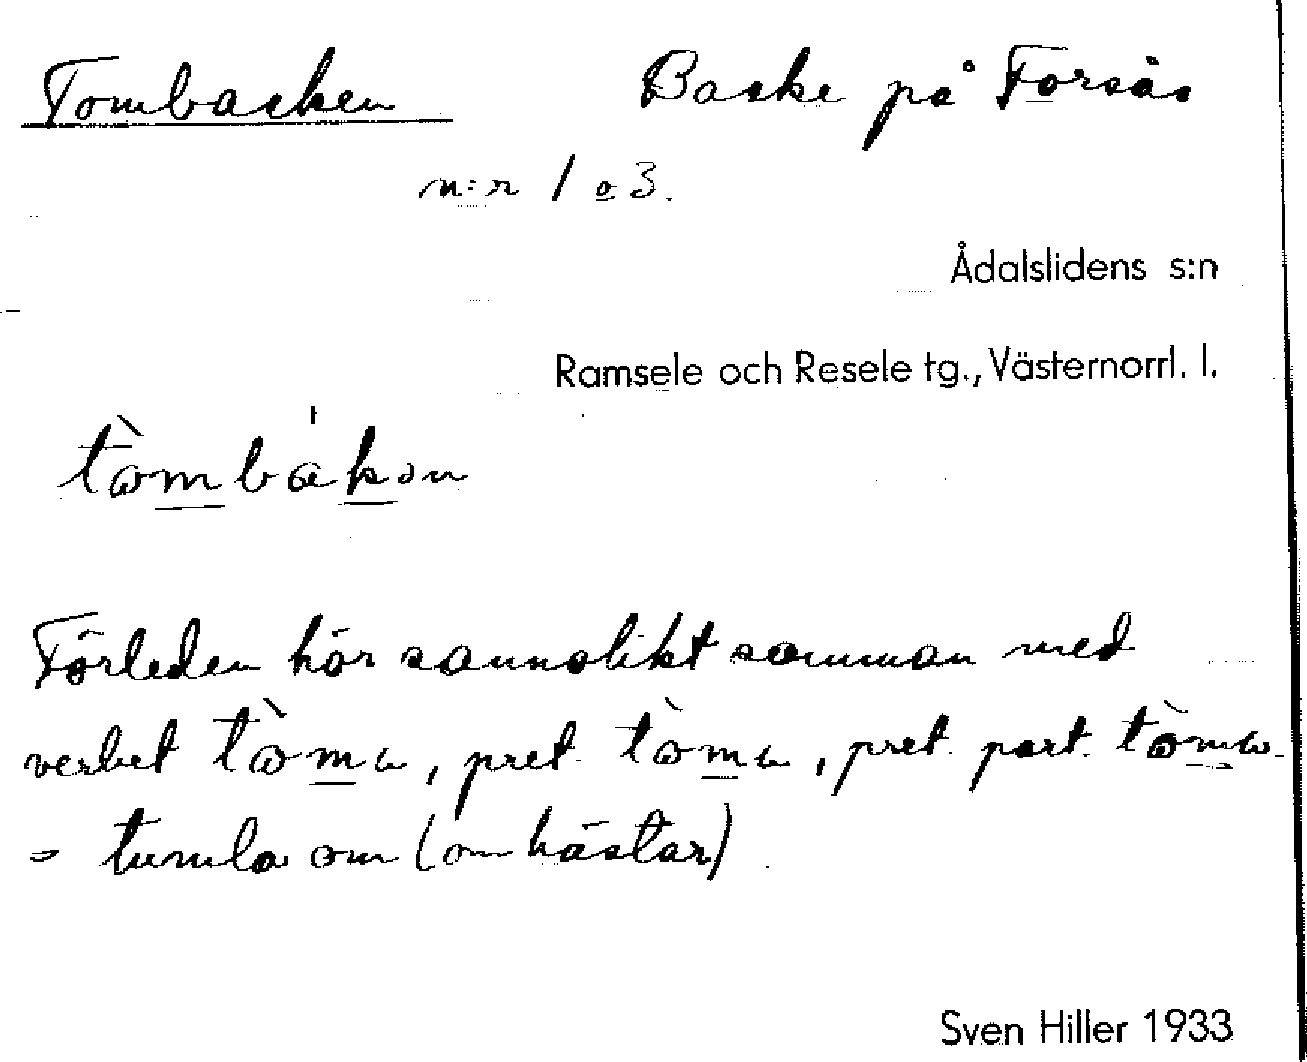 Tombacken Backe på Forsås
n:r 1 o 3.
Ådalslidens s:n
Ramsele och Resele tg., Västernorrl. l.
tòmbákən
Förleden hör sannolikt samman med
verbet tòma, pret. tòma, pret. part. tòma
= tumla om (om hästar)
Sven Hiller 1933